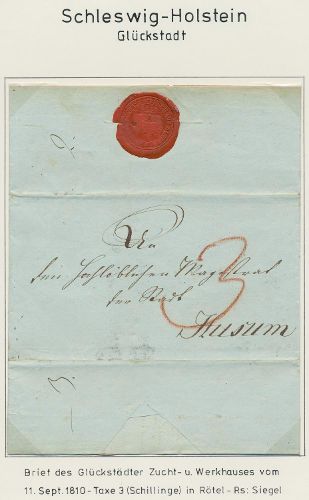 Schleswig-Holstein
Glückstadt
An
den Hochlöblichen Magistrat
der Stadt
Husum
3
Brief des Glückstädter Zucht- u. Werkhauses vom
11. Sept. 1810 - Taxe 3 (Schillinge) in Rötel - Rs: Siegel